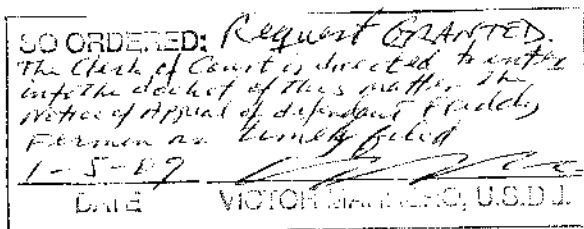 SO ORDERED: Request GRANTED.
The Clerk of Court is directed to enter
into the docket of this matter the
Notice of Appeal of defendant Freddy
Fermin as timely filed
1-5-09
DATE VICTOR MARRERO, U.S.D.J.